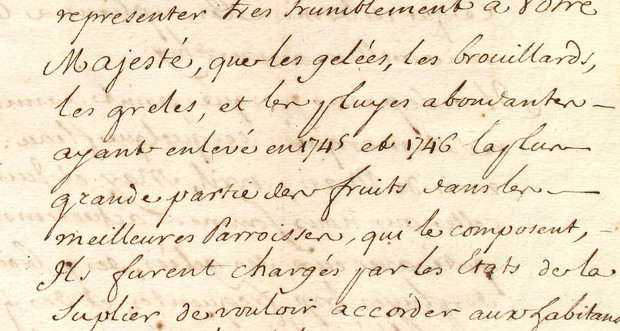 representer tres humblement a Votre
Majesté, que les gelées, les brouillards,
les greles, et les pluyes abondantes –
ayant enlevé en 1745 et 1746 la plus
grande partie des fruits dans les –
meilleures Parroisses, qui le composent, –
Ils furent chargés par les Etats de la
Suplier de vouloir accorder aux habitans